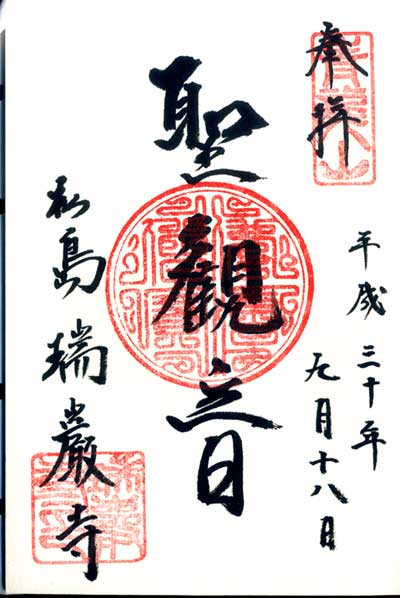 奉拝
平成三十年
九月十八日
聖観音
松島瑞巌寺